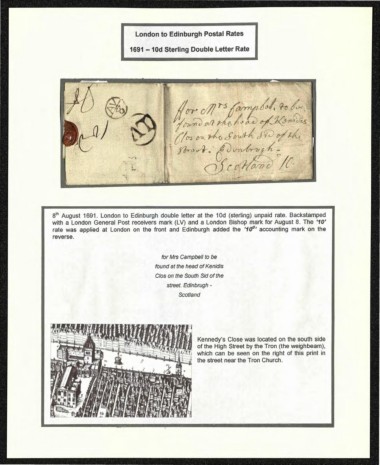 London to Edinburgh Postal Rates
1691 – 10d Sterling Double Letter Rate
for Mrs Campbell to be
found at the head of Kenidis
Clos on the South Sid of the
street. Edinbrugh -
Scotland
8th August 1691. London to Edinburgh double letter at the 10d (sterling) unpaid rate. Backstamped
with a London General Post receivers mark (LV) and a London Bishop mark for August 8. The "10"
rate was applied at London on the front and Edinburgh added the "10d" accounting mark on the
reverse.
for Mrs Campbell to be
found at the head of Kenidis
Clos on the South Sid of the
street. Edinbrugh –
Scotland
Kennedy's Close was located on the south side
of the High Street by the Tron (the weighbeam),
which can be seen on the right of this print in
the street near the Tron Church.